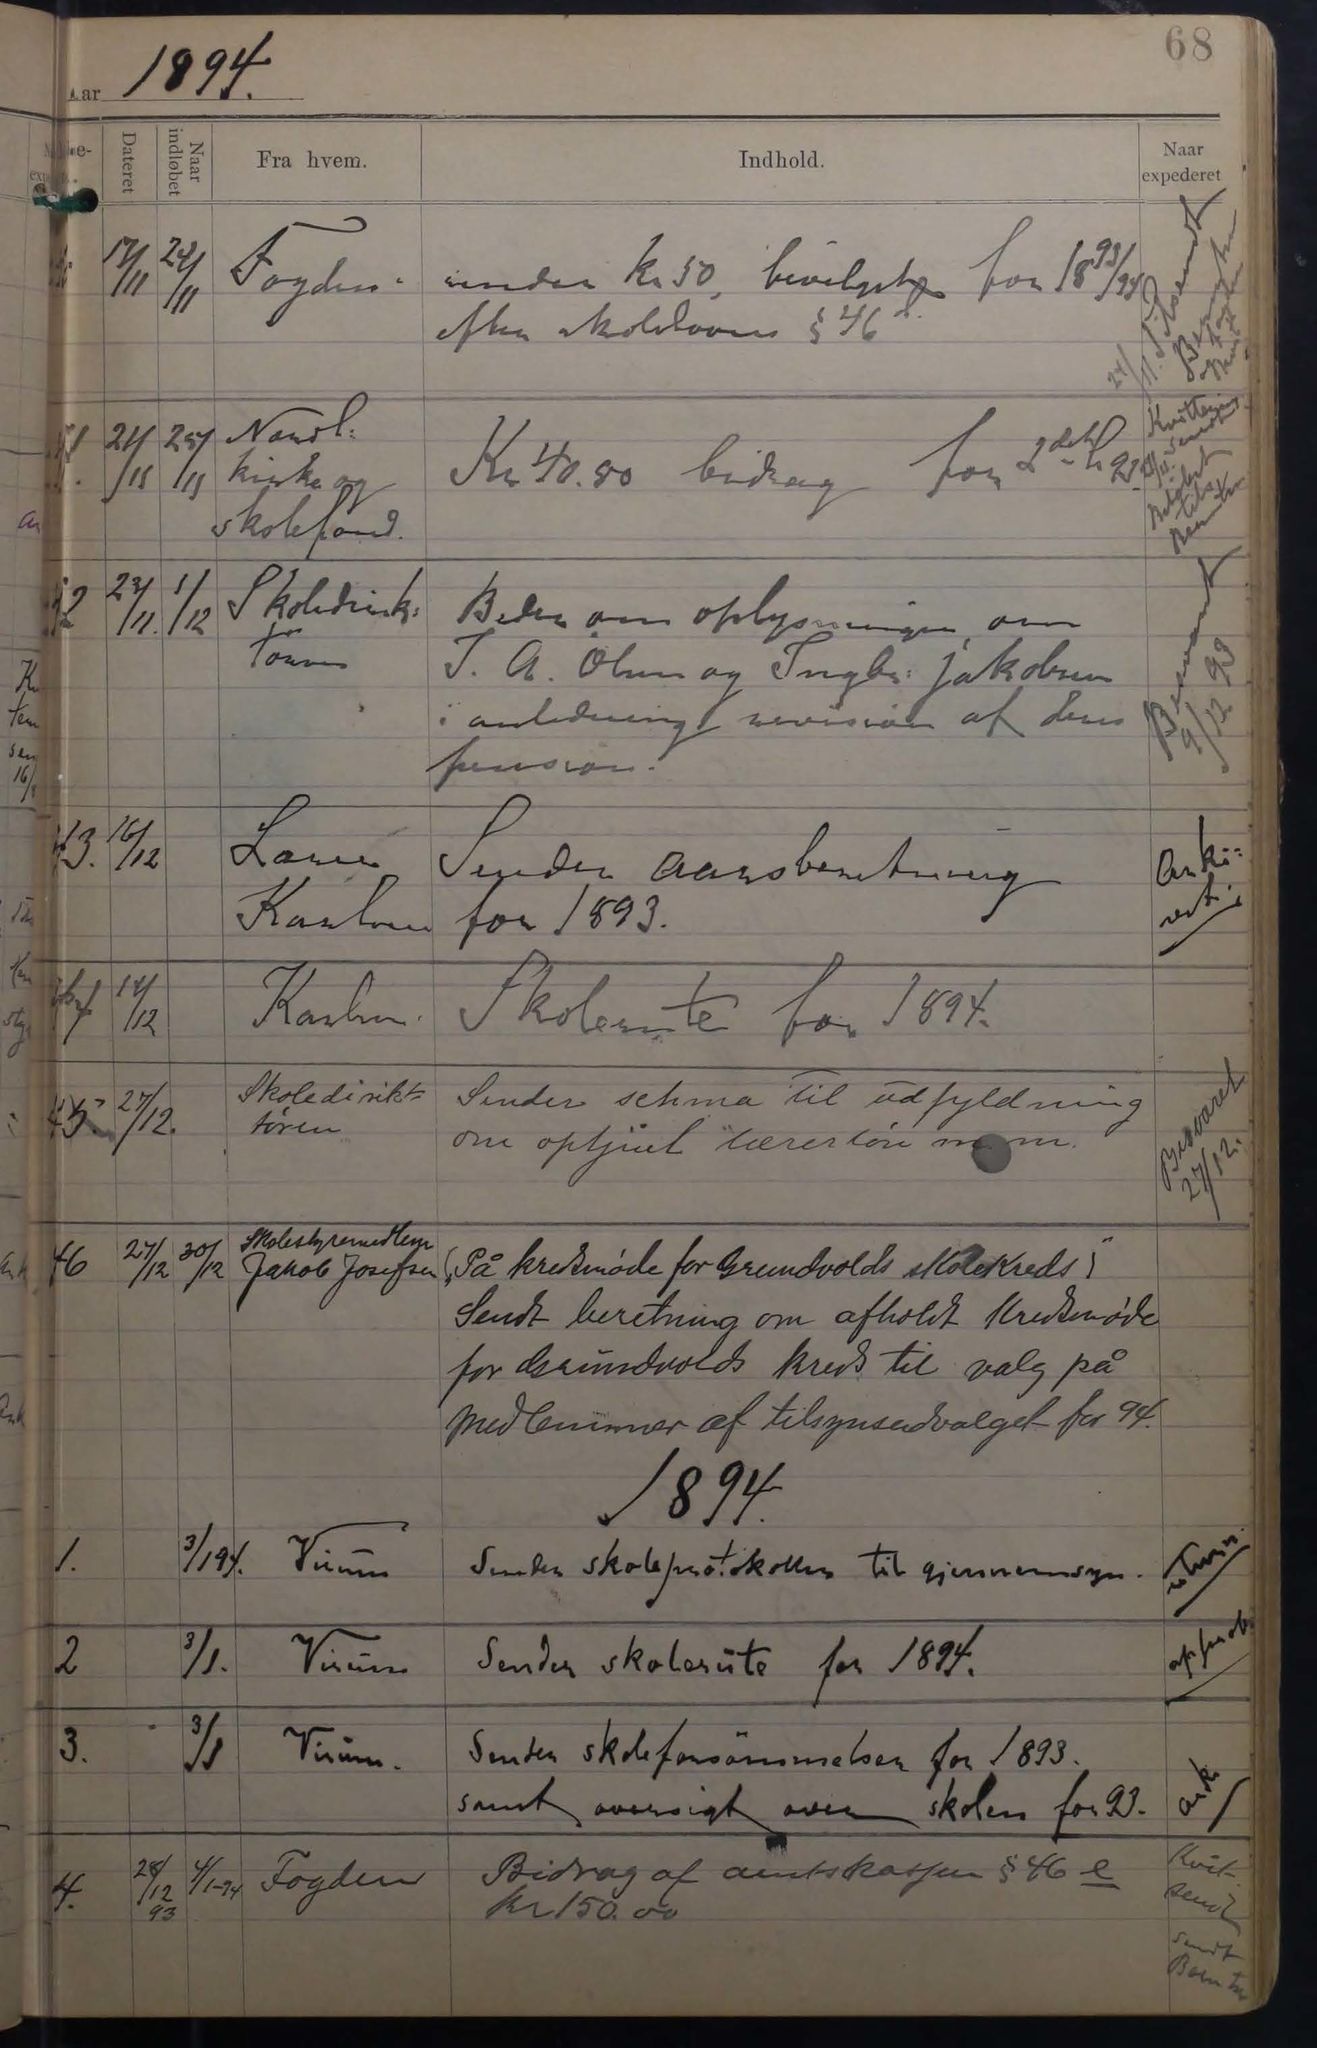 68
Aar 1894.
Dateret
Naar indløbet
Fra hvem.
Indhold.
Naar expederet
17/11 24/11 Fogden sender kr 50, bevilget for 18 93/94
efter skoleloven § 46 d.
24/11
21/11 25/11 Nordl:
kirke og
skolefond.
Kr 40.80 bidrag for 2det h 93
Kvittering
sendt
Beløbet
tils.
42 23/11. 1/12 Skoledirek:
tøren
Beder om oplysninger om
J. A. Olsen og Ingbr: Jakobsen
i anledning revision af deres
pension.
Besvart
9/12 93
43. 16/12 Karlsen
Sender aarsberetning
for 1893.
Arki:
vert.
14/12 Karlsen. Skolerute for 1894.
45. 27/12. Skoledirekt=
tören
Sender schma til udfyldning
om optjent lærerlön m.m.
Besvaret
27/12.
46 27/12 30/12 Skolestyremedlem
Jakob Josefsen
"På kredsmøde for Grundvolds skolekreds"
Sendt beretning om afholdt kredsmøde
for Grundvolds kreds til valg på
medlemmer af tilsynsudvalget for 94.
1894.
1. 3/1 94. Virum Sender skoleprotokollen til gjennemsyn.
return.
2 3/1. Virum Sender skolerute for 1894.
approb.
3. 3/1 Virum. Sender skoleforsömmelser for 1893.
samt oversigt over skolen for 93.
ark
4. 28/12 93 4/1-94 Fogden Bidrag af amtskassen § 46 e
kr 150.00
Kvit.
sendt
sendt